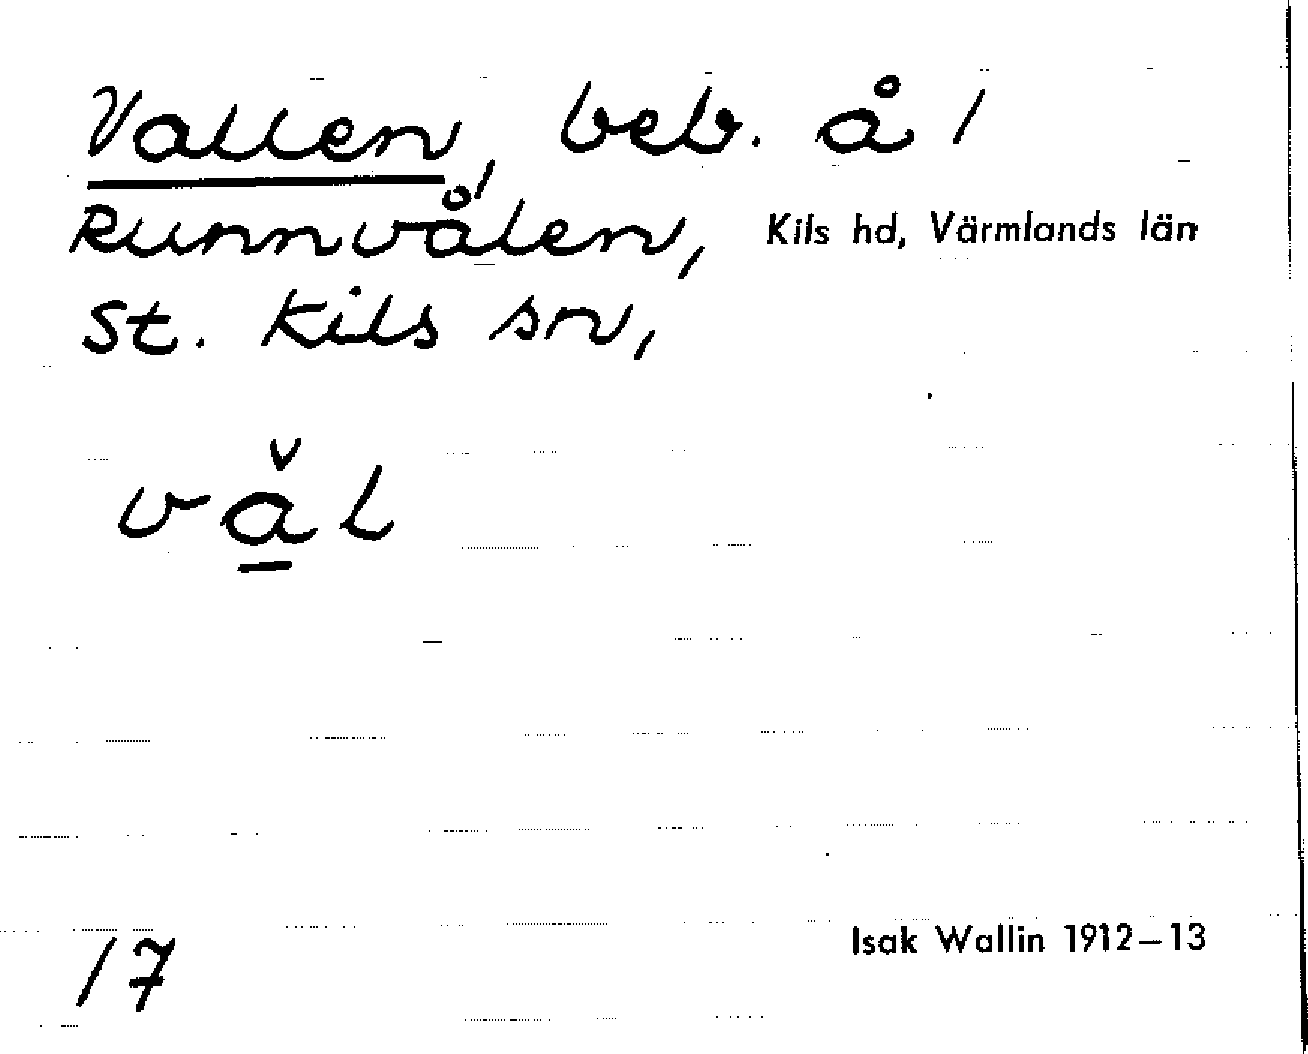 Vallen, beb. å 1/
Runnvålen, Kils hd, Värmlands län
St. Kils sn,
vål
17
Isak Wallin 1912–13